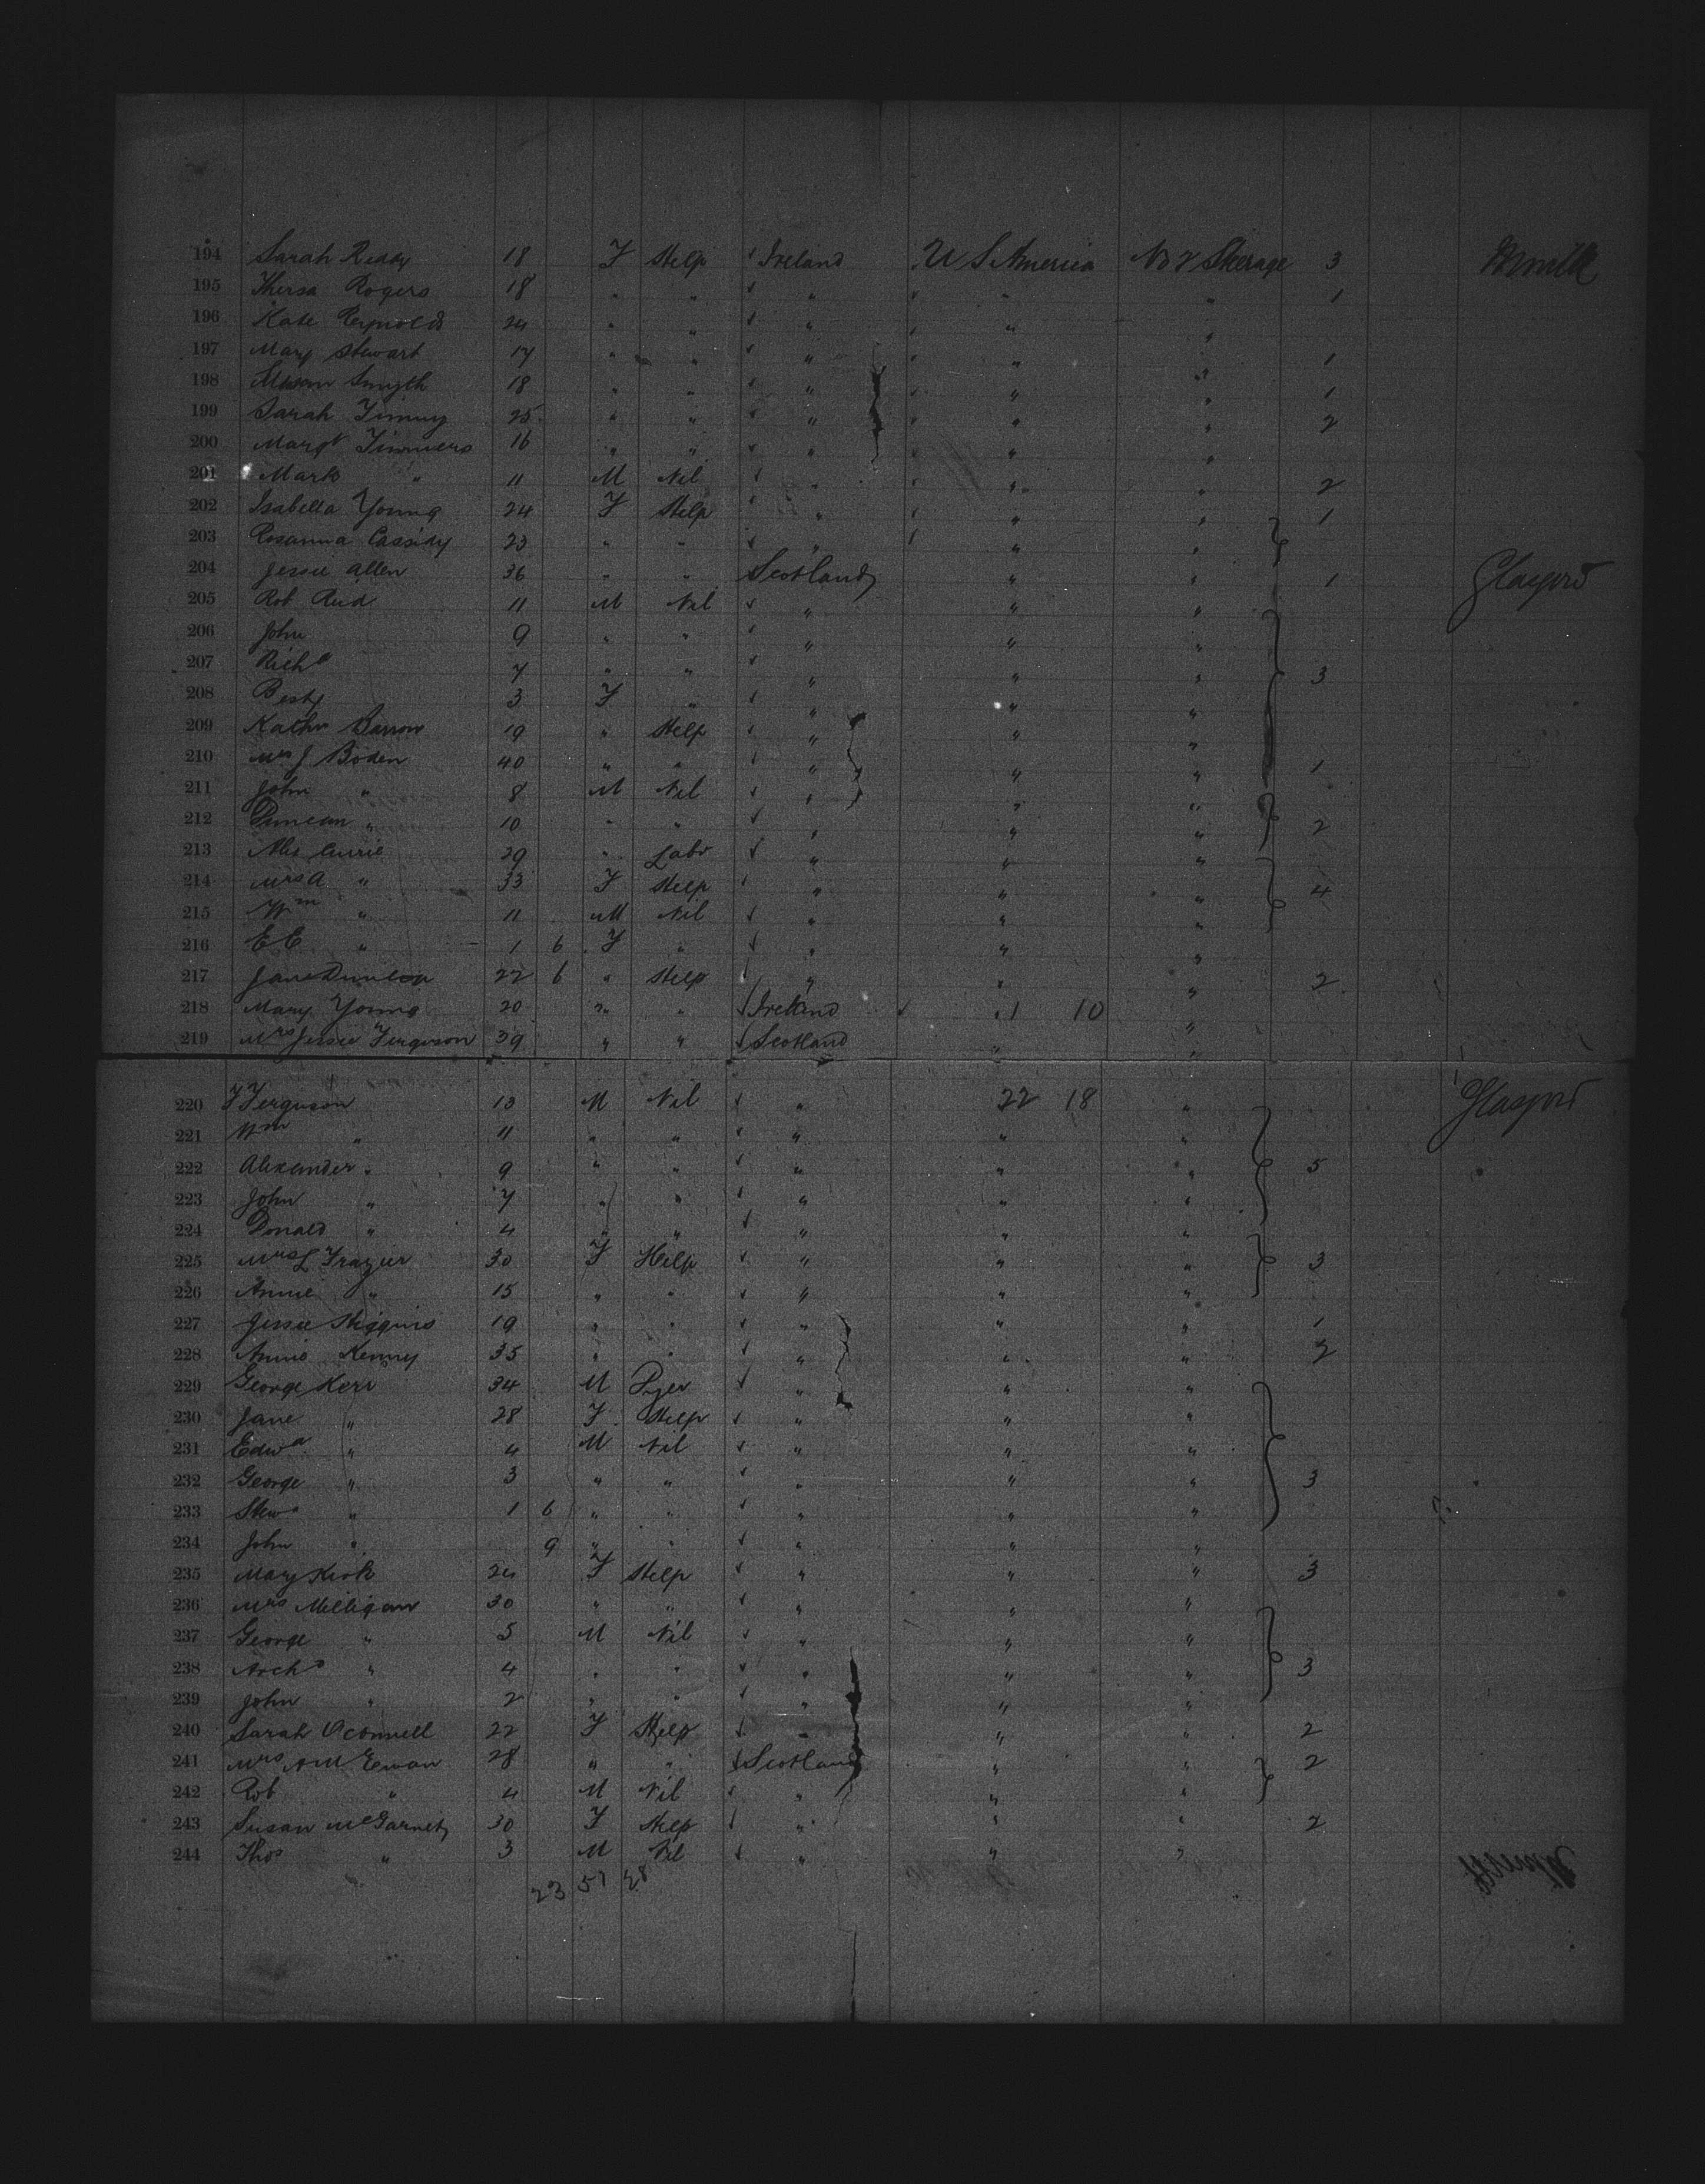 194 Sarah Reddy 18 F Help ✓ Ireland U S America No 2 Steerage 3
195 Thersa Rogers 18 " " ✓ " ✓ " " 1
196 Kate Reynolds 24 " " ✓ " ✓ " "
197 Mary Stewart 17 " " ✓ " ✓ " " 1
198 Smyth 18 " " ✓ " ✓ " " 1
199 Sarah 25 " " ✓ " ✓ " " 2
200 Margt 16 " " ✓ " ✓ " "
201 Mark " 11 M Nil ✓ " ✓ " " 2
202 Isabella Young 24 F Help ✓ " ✓ " " 1
203 Rosanna Cassidy 23 " " ✓ " ✓ " "
204 Jessie Allen 36 " " Scotland " " 1 Glasgow
205 Rob Reid 11 M Nil ✓ " " "
206 John 9 " " ✓ " " "
207 Richd 7 " " ✓ " " " 3
208 Besty 3 F " ✓ " " "
209 Kathr Barron 19 " Help ✓ " " "
210 Mrs J Boden 40 " " ✓ " " " 1
211 John " 8 M Nil ✓ " " "
212 Duncan " 10 " " ✓ " " " 2
213 Alex Currie 29 " Labr ✓ " " "
214 Mrs A " 33 F Help ✓ " " " 4
215 Wm " 11 M Nil ✓ " " "
216 E C " 1 6 F " ✓ " " "
217 Jane Dunlop 22 6 " Help ✓ " " " 2
218 Mary Young 20 " " ✓ Ireland ✓ 1 10 "
219 Mrs Jessie Ferguson 39 " " ✓ Scotland " "
220 J Ferguson 13 M Nil ✓ " 22 18 " Glasgow
221 Wm " 11 " " ✓ " " "
222 Alexander " 9 " " ✓ " " " 5
223 John " 7 " " ✓ " " "
224 Donald " 4 " " ✓ " " "
225 Mrs L Frazier 30 F Help ✓ " " " 3
226 Annie " 15 " " ✓ " " "
227 Jessie Higgins 19 " " ✓ " " " 1
228 Annie Kenny 35 " " ✓ " " " 2
229 George Kerr 34 M ✓ " " "
230 Jane " 28 F Help ✓ " " "
231 Edwd " 4 M Nil ✓ " " "
232 George " 3 " " ✓ " " " 3
233 Stew " 1 6 " " ✓ " " "
234 John " 9 " " ✓ " " "
235 Mary Kirk 24 F Help ✓ " " " 3
236 Mrs Milligan 30 " " ✓ " " "
237 George " 5 M Nil ✓ " " "
238 Archd " 4 " " ✓ " " " 3
239 John " 2 " " ✓ " " "
240 Sarah Oconnell 22 F Help ✓ " " " 2
241 Mrs A McEwan 28 " " ✓ Scotland " " 2
242 Rob " 4 M Nil ✓ " " "
243 Susan McGarnety 30 F Help ✓ " " " 2
244 Thos " 3 M Nil ✓ " " "
23 51 28